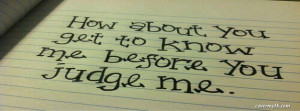 How about you
get to know
me before you
judge me.